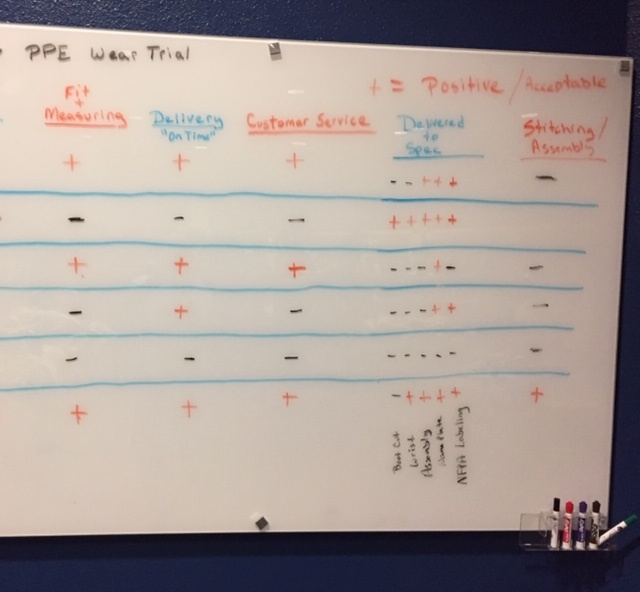 PPE Wear Trial
+ = Positive / Acceptable
Fit + Measuring
Delivery "On Time"
Customer Service
Delivered to Spec
Stitching / Assembly
+ + + - - + + + -
- - - + + + + +
+ + + - - - + - -
- + - - - - + + -
- - - - - - - - -
+ + + - + + + + +
Boot Cut
Wrist
Assembly
Name Plate
NFPA Labeling